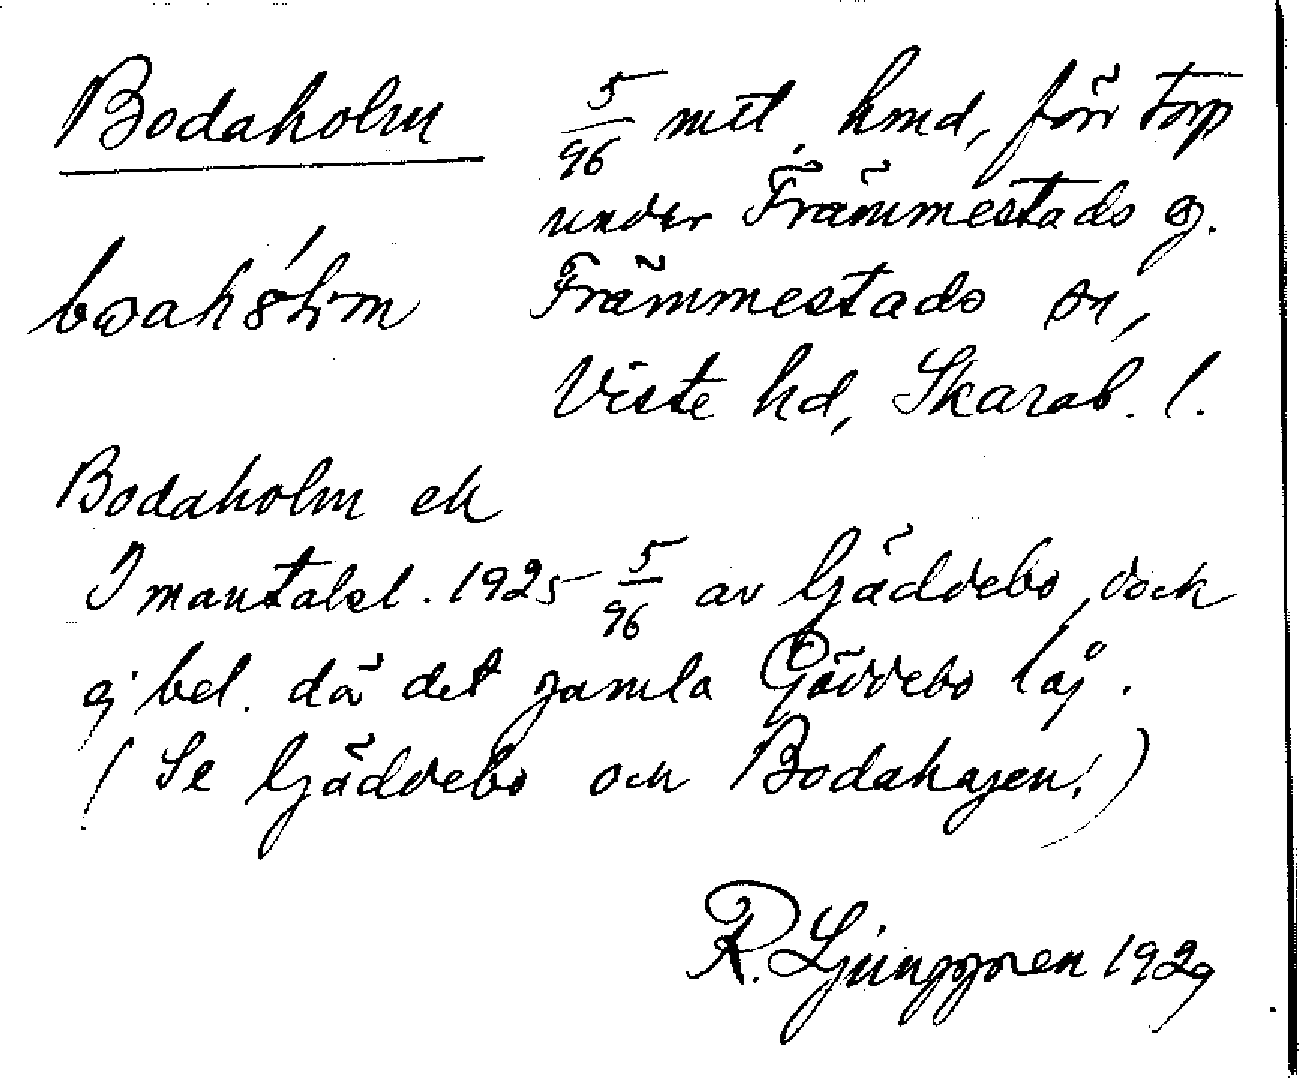 Bodaholm
5/96 mtl. hmd, förr torp
under Främmestads g.
Främmestads sn,
Viste hd, Skarab. l.
Bodaholm ek
I mantalsl. 1925 5/96 av Gäddebo, dock
ej bel. där det gamla Gäddebo låg.
(Se Gäddebo och Bodahagen.)
R. Ljunggren 1929